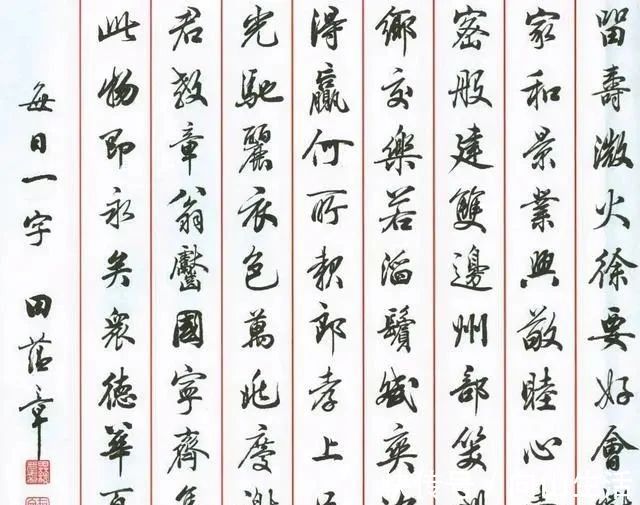 留壽激火徐要好會
家和景業興敬睦心
密般建雙邊州部
鄉交樂若滔鬢賦奕
得贏何所賴郎孝上
光馳麗衣色萬兆度
君教章翁鑿國寧齊
此物即永矣衆德華百
每日一字
田蕴章